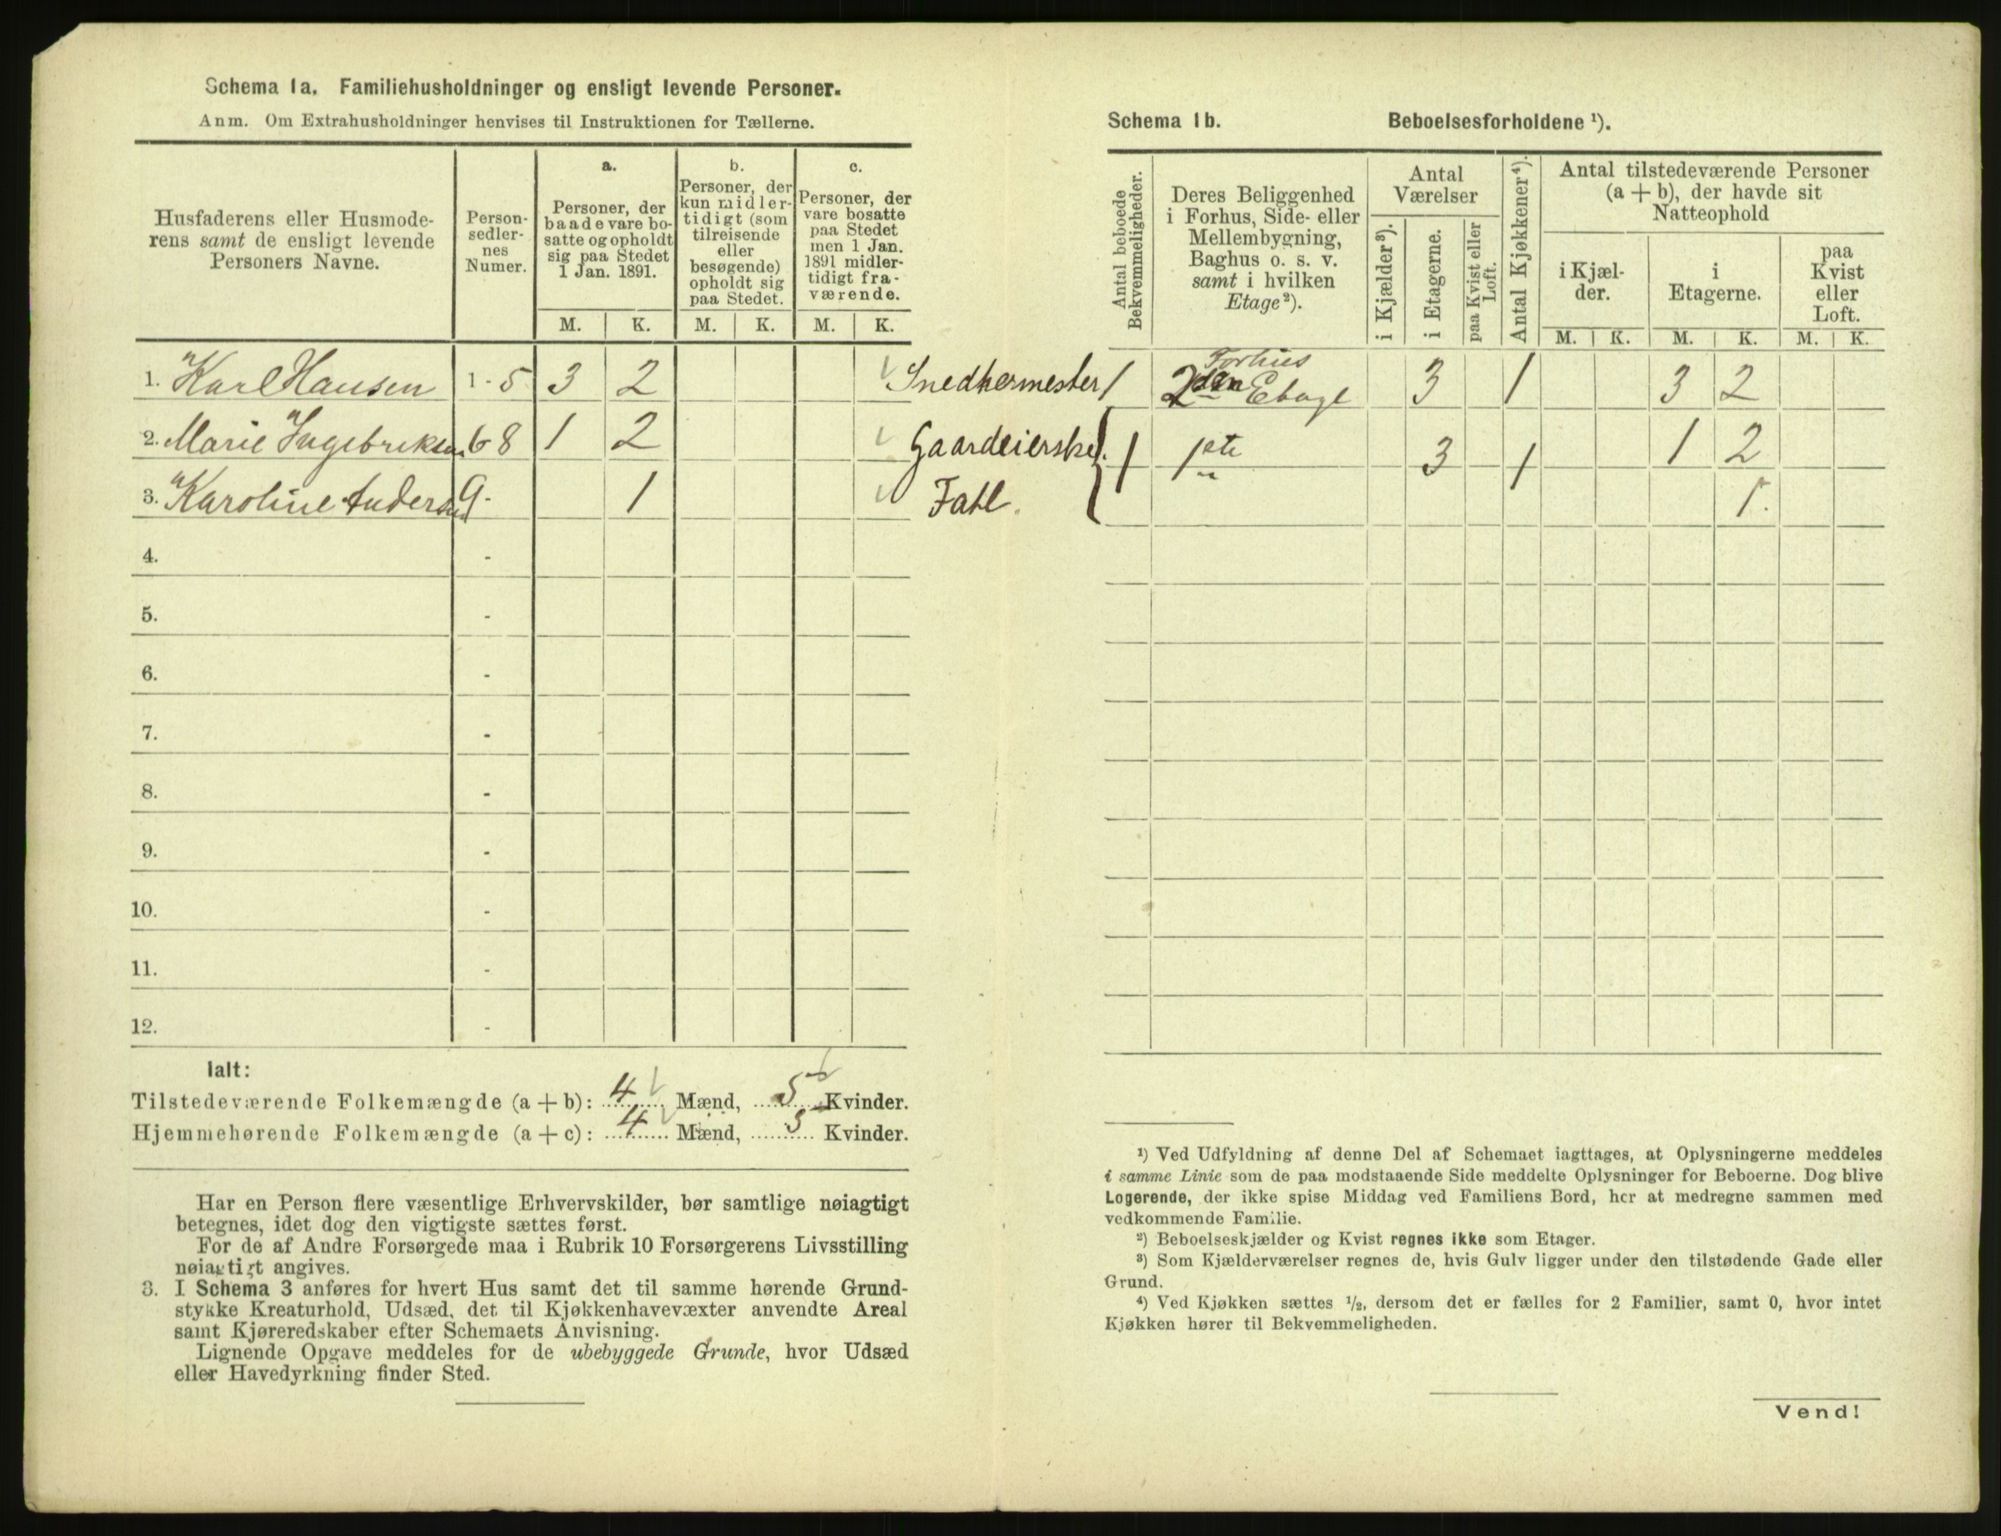 Schema 1a. Familiehusholdninger og ensligt levende Personer.
Anm. Om Extrahusholdninger henvises til Instruktionen for Tællerne.
Husfaderens eller Husmode-
rens samt de ensligt levende
Personers Navne.
Person-
sedler-
nes
Numer.
a.
Personer, der
baade vare bo-
satte og opholdt
sig paa Stedet
1 Jan. 1891.
b.
Personer, der
kun midler-
tidigt (som
tilreisende
eller
besøgende)
opholdt sig
paa Stedet.
c.
Personer, der
vare bosatte
paa Stedet
men 1 Jan.
1891 midler-
tidigt fra-
værende.
M. K. M. K. M. K.
1. Karl Hansen 1-5 3 2 Snedkermester
2. Marie Ingebriksen 6-8 1 2 Gaardeierske
3. Karoline Anders 9- 1 Fatl.
4. -
5. -
6. -
7. -
8. -
9. -
10. -
11. -
12. -
Ialt:
Tilstedeværende Folkemængde (a + b): 4 Mænd, 5 Kvinder.
Hjemmehørende Folkemængde (a + c): 4 Mænd, 5 Kvinder.
Har en Person flere væsentlige Erhvervskilder, bør samtlige nøiagtigt
betegnes, idet dog den vigtigste sættes først.
For de af Andre Forsørgede maa i Rubrik 10 Forsørgerens Livsstilling
nøiagtigt angives.
3. I Schema 3 anføres for hvert Hus samt det til samme hørende Grund-
stykke Kreaturhold, Udsæd, det til Kjøkkenhavevæxter anvendte Areal
samt Kjøreredskaber efter Schemaets Anvisning.
Lignende Opgave meddeles for de ubebyggede Grunde, hvor Udsæd
eller Havedyrkning finder Sted.
Schema 1b. Beboelsesforholdene ¹).
Antal beboede
Bekvemmeligheder.
Deres Beliggenhed
i Forhus, Side- eller
Mellembygning,
Baghus o. s. v.
samt i hvilken
Etage²).
Antal
Værelser
i Kjælder³).
i Etagerne.
paa Kvist eller
Loft.
Antal Kjøkkener⁴).
Antal tilstedeværende Personer
(a + b), der havde sit
Natteophold
i Kjæl-
der.
i
Etagerne.
paa
Kvist
eller
Loft.
M. K. M. K. M. K.
Forhus
1 2den Etage 3 1 3 2
1 1ste 3 1 1 2
1.
¹) Ved Udfyldning af denne Del af Schemaet iagttages, at Oplysningerne meddeles
i samme Linie som de paa modstaaende Side meddelte Oplysninger for Beboerne. Dog blive
Logerende, der ikke spise Middag ved Familiens Bord, her at medregne sammen med
vedkommende Familie.
²) Beboelseskjælder og Kvist regnes ikke som Etager.
³) Som Kjælderværelser regnes de, hvis Gulv ligger under den tilstødende Gade eller
Grund.
⁴) Ved Kjøkken sættes ½, dersom det er fælles for 2 Familier, samt 0, hvor intet
Kjøkken hører til Bekvemmeligheden.
Vend!